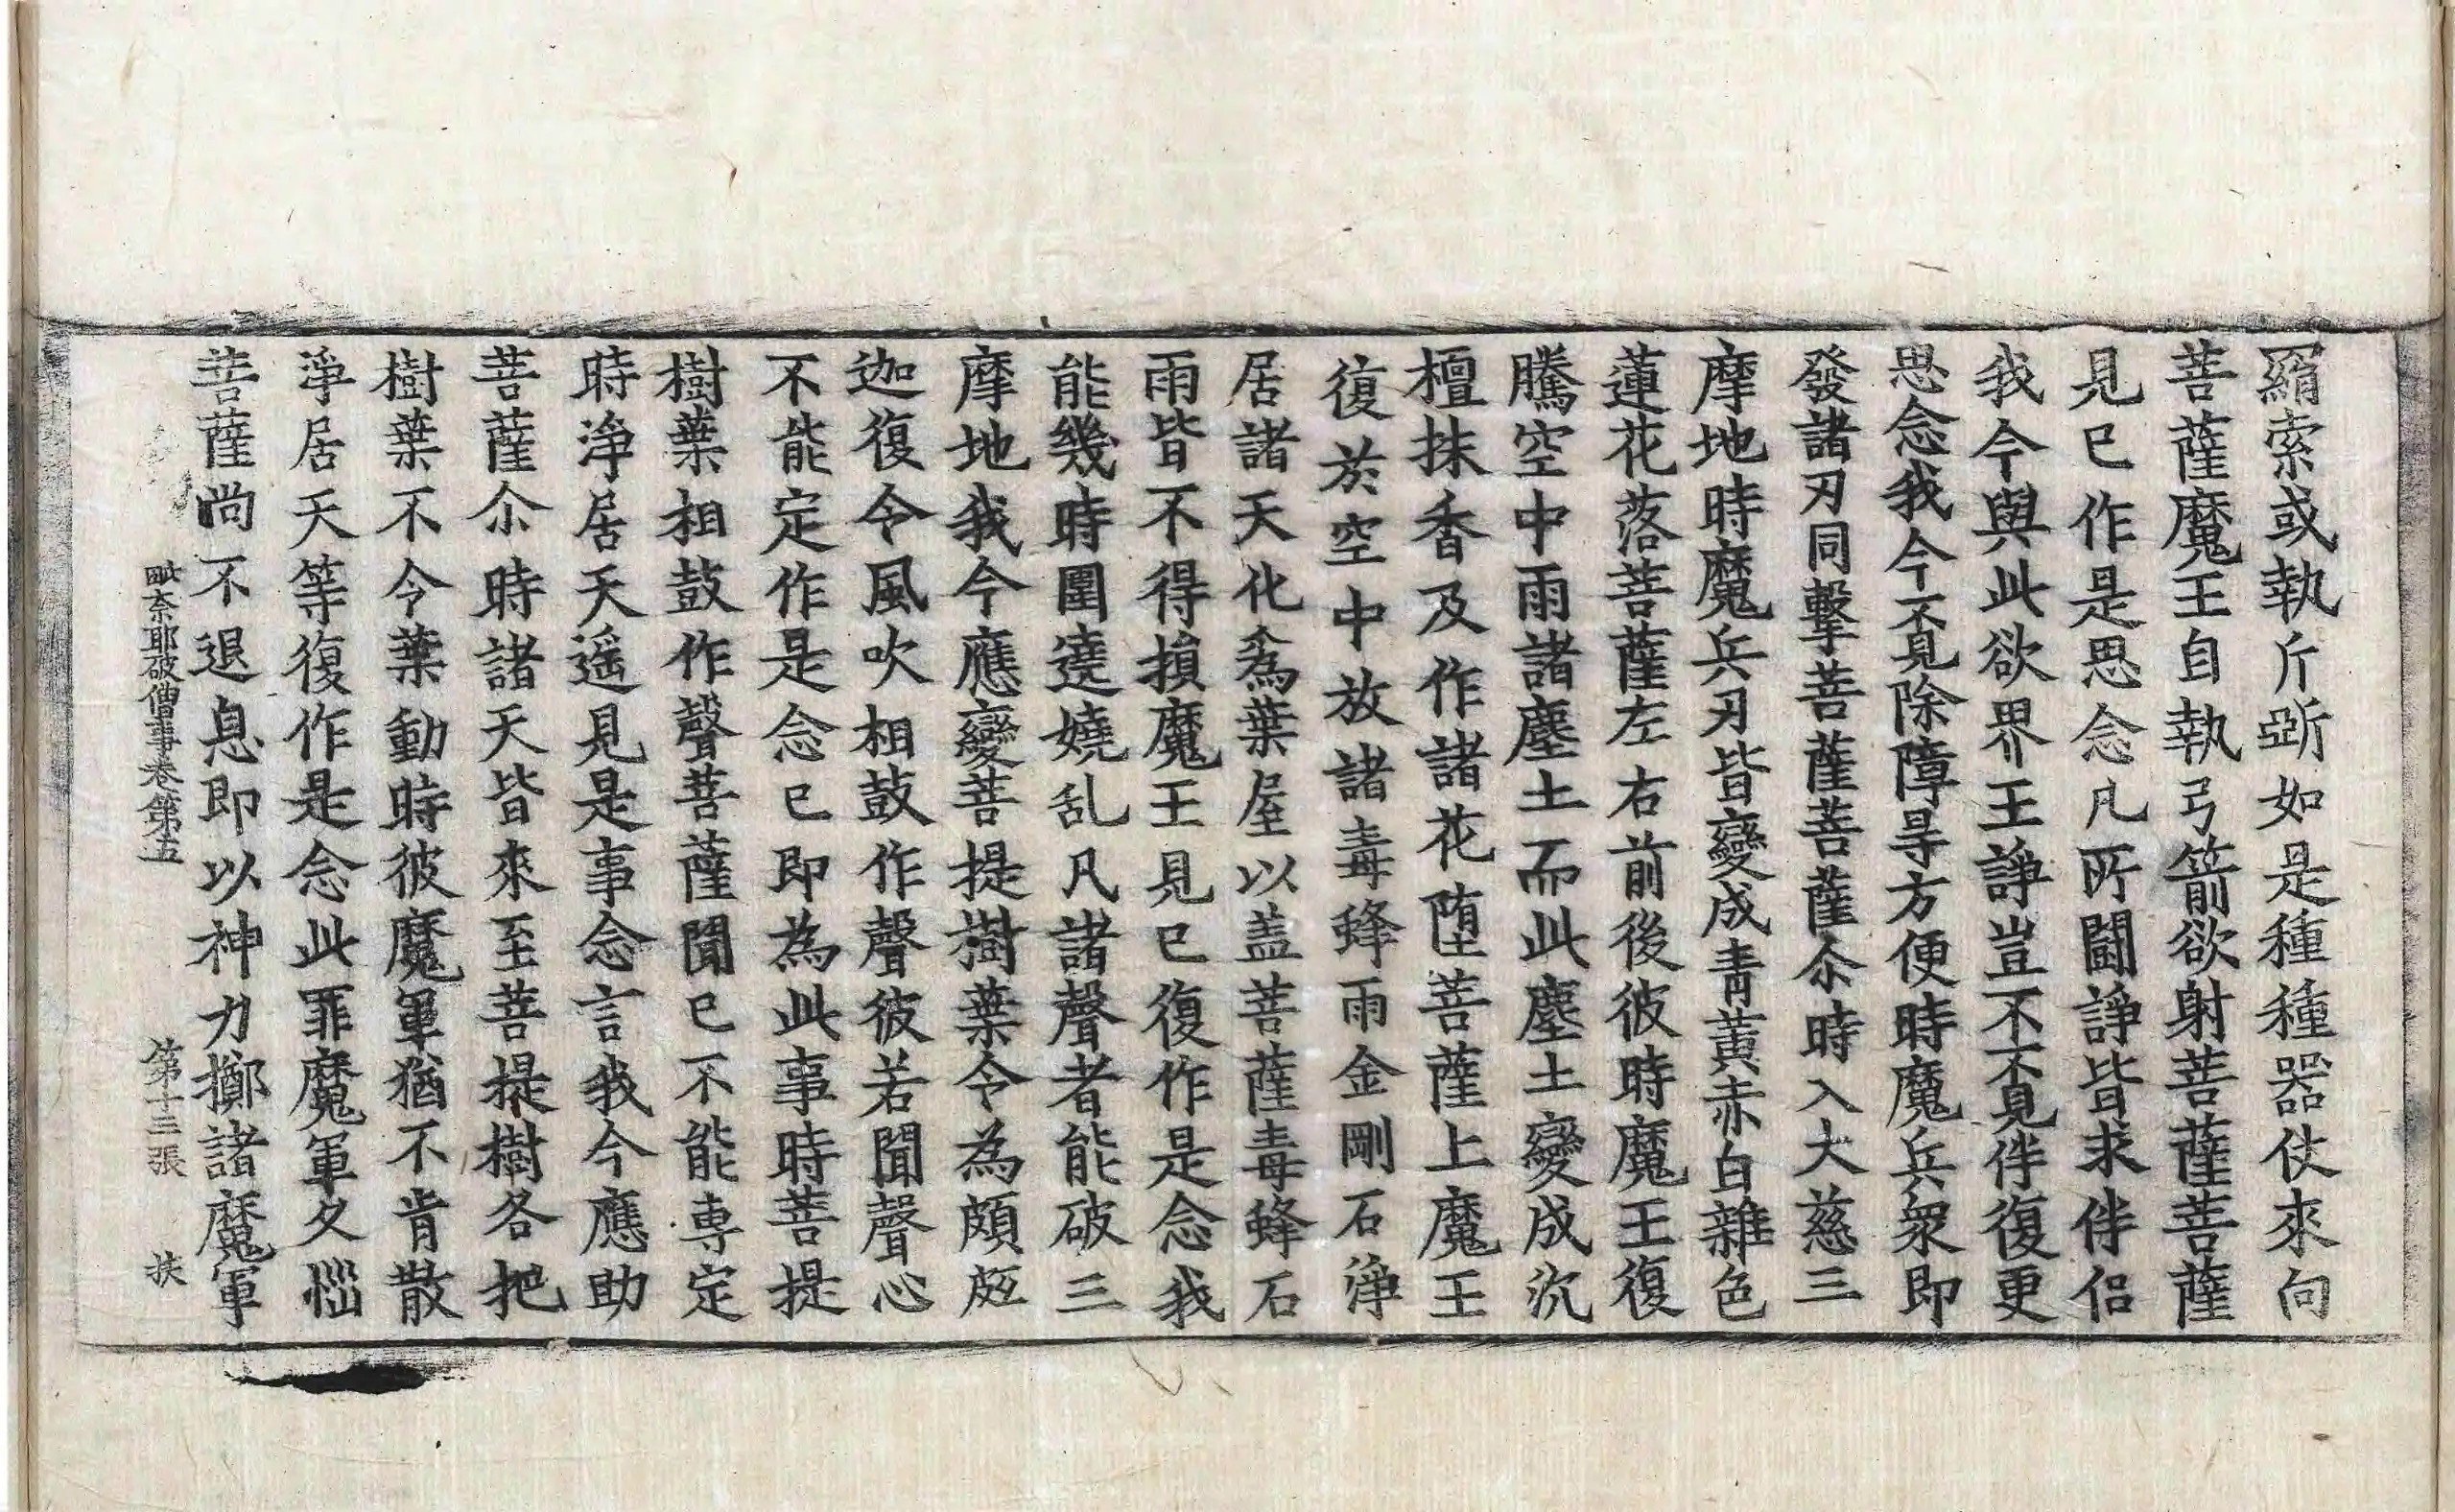 羂索或執斤斵如是種種器仗來向
菩薩魔王自執弓箭欲射菩薩菩薩
見已作是思念凡所鬪諍皆求伴侣
我今與此欲界王諍豈不不覓伴復更
思念我今不覓除障㝵方便時魔兵衆即
發諸刃同擊菩薩菩薩尒時入大慈三
摩地時魔兵刃皆變成青黃赤白雜色
蓮花落菩薩左右前後彼時魔王復
騰空中雨諸塵土而此塵土變成沉
檀抹香及作諸花墮菩薩上魔王
復於空中放諸毒蜂雨金剛石淨
居諸天化爲葉屋以盖菩薩毒蜂石
雨皆不得損魔王見已復作是念我
能幾時圍遶嬈乱凡諸聲者能破三
摩地我今應變菩提樹葉令為頗胝
迦復令風吹相鼓作聲彼若聞聲心
不能定作是念已即為此事時菩提
樹葉相鼓作聲菩薩聞已不能專定
時淨居天遥見是事念言我今應助
菩薩尒時諸天皆來至菩提樹各把
樹葉不令葉動時彼魔軍猶不肯散
淨居天等復作是念此罪魔軍久惱
菩薩尚不退息即以神力擲諸魔軍
毗奈耶破僧事卷第五 第十三張 扶